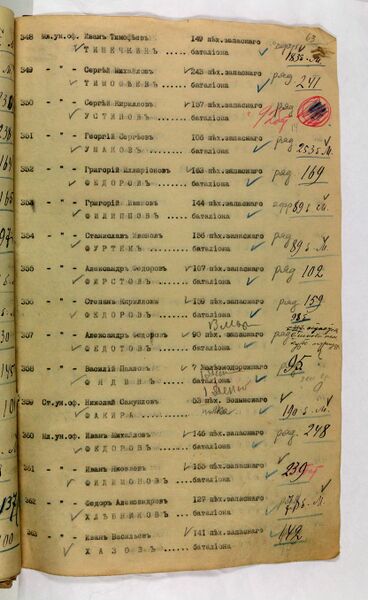 63
348 Мл.ун.оф. Иванъ Тимофѣевъ 149 пѣх.запаснаго
ТИМЕЧКИНЪ ..... баталіона 183 б. М.
349 - " - Сергѣй Михайловъ 243 пѣх.запаснаго ряд 241
ТИМОФѢЕВЪ ..... баталіона
350 - " - Сергѣй Кирилловъ 157 пѣх.запаснаго ряд
УСТИНОВЪ ..... баталіона
351 - " - Георгій Сергѣевъ 156 пѣх.запаснаго ряд
УШАКОВЪ ..... баталіона 253 б. М.
352 - " - Григорій Илларіоновъ 163 пѣх.запаснаго ряд 169
ФЕДОРОВЪ ..... баталіона
353 - " - Григорій Ивановъ 144 пѣх.запаснаго 89 б. М.
ФИЛИППОВЪ ..... баталіона
354 - " - Станиславъ Ивановъ 136 пѣх.запаснаго ряд
ФУРТЕКЪ ..... баталіона 89 б. М.
355 - " - Александръ Федоровъ 167 пѣх.запаснаго ряд 102
ФИРСТОВЪ ..... баталіона
356 - " - Степанъ Кирилловъ 159 пѣх.запаснаго ряд 159
ФЕДОРОВЪ ..... баталіона
357 - " - Александръ Федоровъ 98 пѣх.запаснаго ряд
ФЕДОТОВЪ ..... баталіона
358 - " - Василій Павловъ 7 Желѣзнодорожнаго 95
ФИДИНЪ ..... баталіона
359 Ст.ун.оф. Николай Самуиловъ 53 пѣх. Волынскаго
ФАКИРА ..... полка 190 б. М.
360 Мл.ун.оф. Иванъ Михайловъ 146 пѣх.запаснаго ряд 248
ФЕДОРОВЪ ..... баталіона
361 - " - Иванъ Яковлевъ 155 пѣх.запаснаго 239
ФИЛИМОНОВЪ ..... баталіона
362 - " - Федоръ Александровъ 127 пѣх.запаснаго
ХЛѢБНИКОВЪ ..... баталіона
363 - " - Иванъ Васильевъ 141 пѣх.запаснаго 142
ХАЗОВЪ ..... баталіона